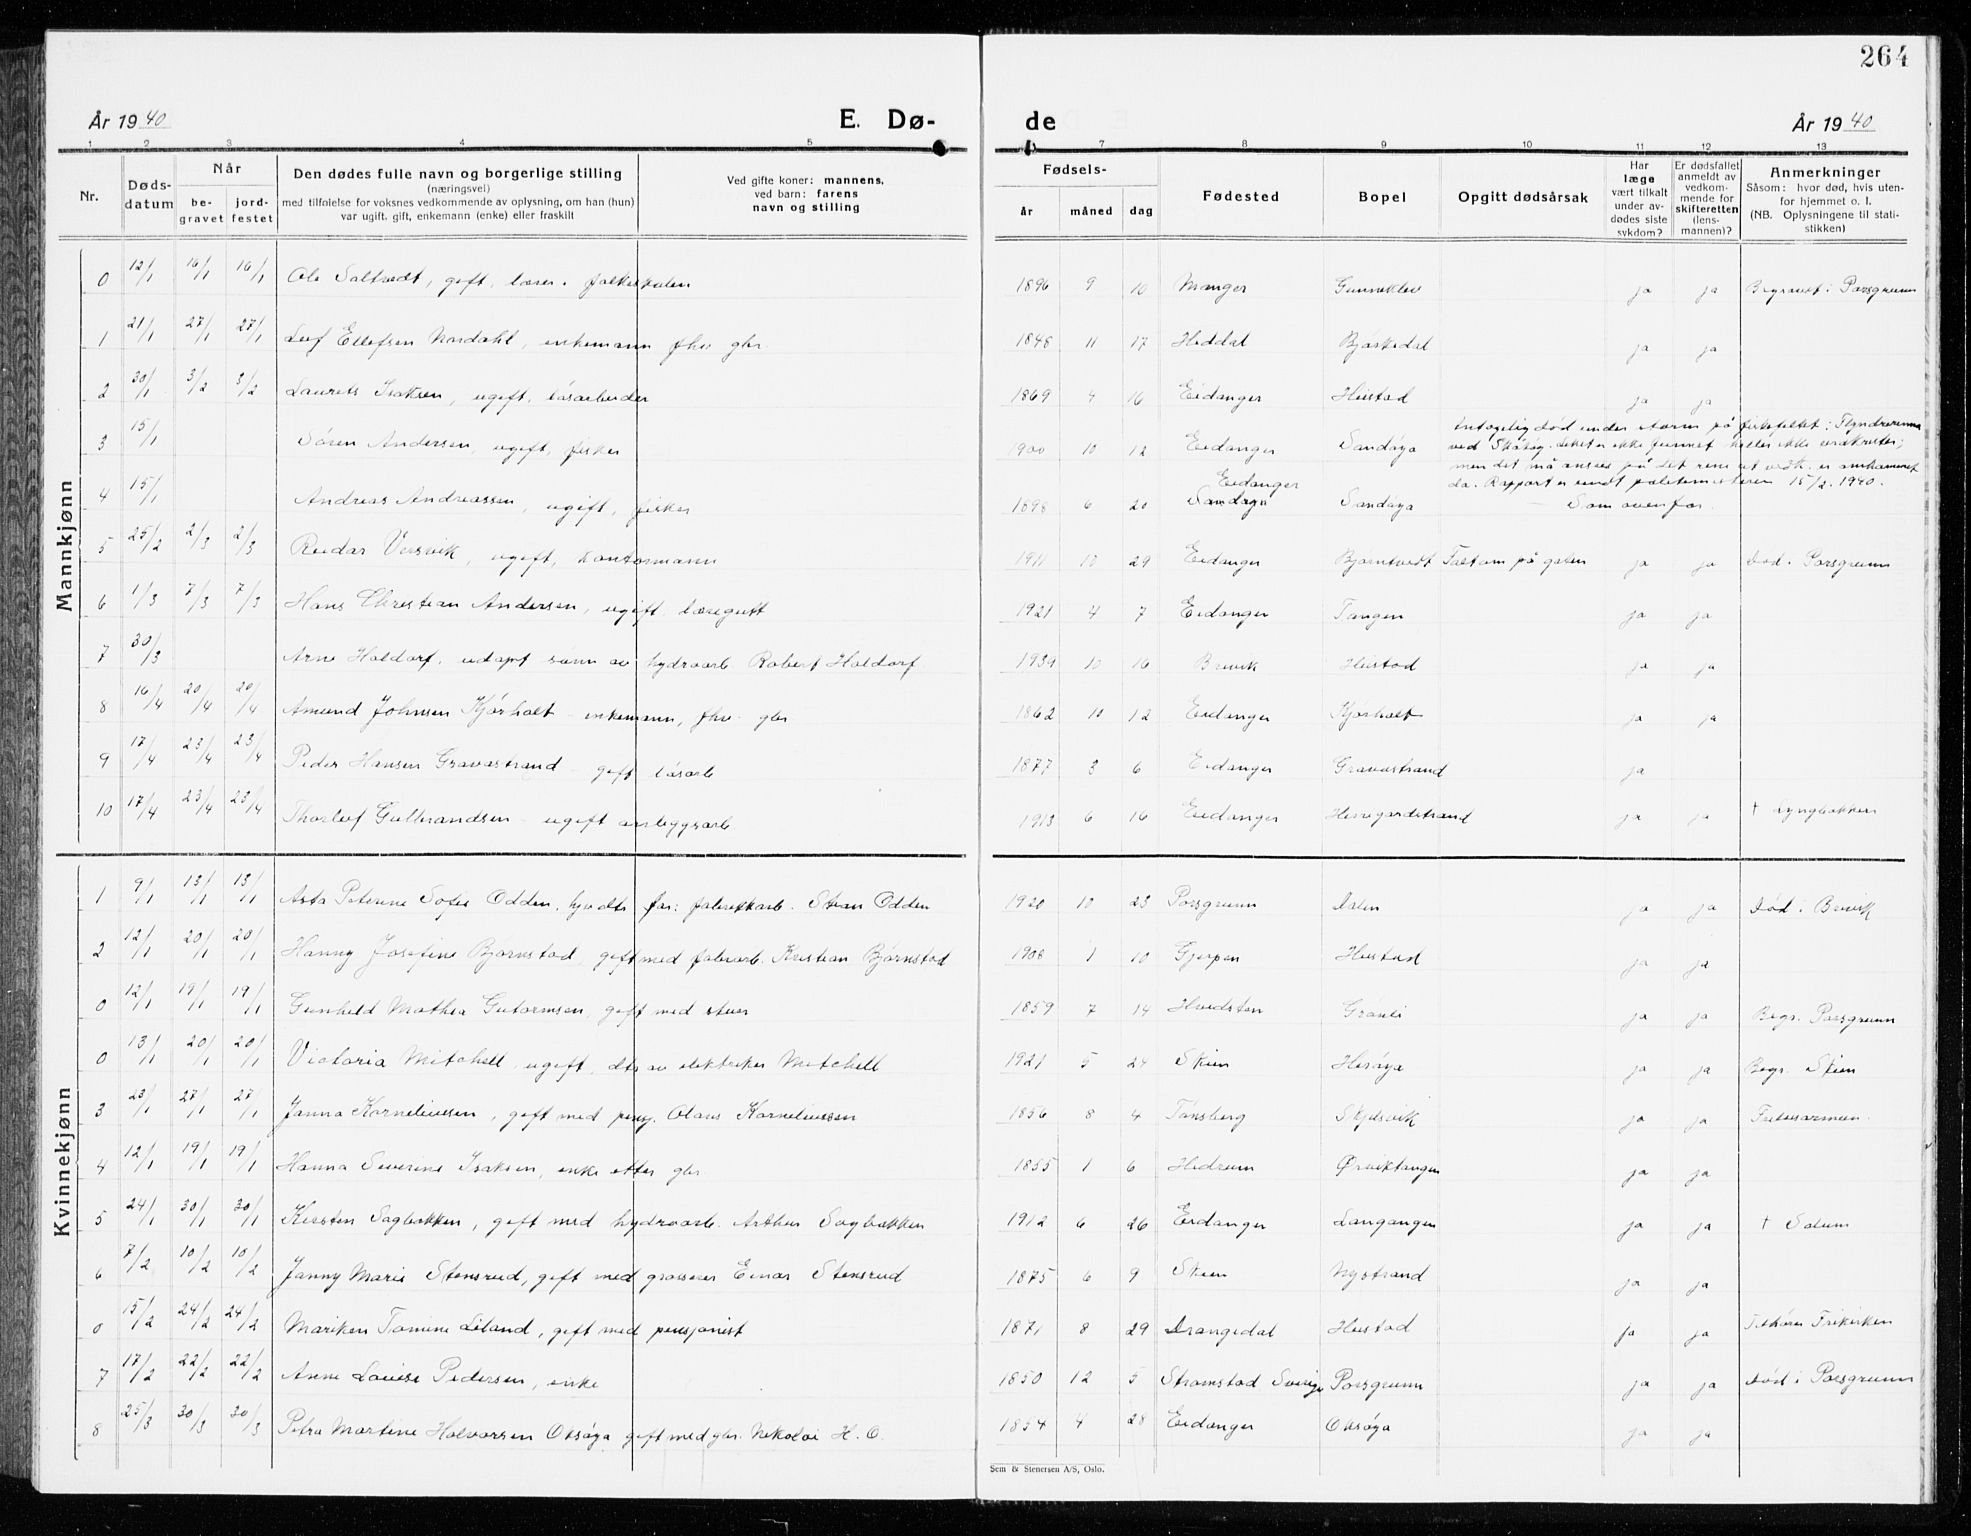 264
År 1940 E. Dø- de År 1940
1 2 3 4 5 7 8 9 10 11 12 13
Nr. Dødsdatum Når begravet jordfestet
Den dødes fulle navn og borgerlige stilling
(næringsvei)
med tilføielse for voksnes vedkommende av oplysning, om han (hun)
var ugift, gift, enkemann (enke) eller fraskilt
Ved gifte koner: mannens,
ved barn: farens
navn og stilling
Fødsels- år måned dag
Fødested Bopel Opgitt dødsårsak
Har læge vært tilkalt under avdødes siste sykdom?
Er dødsfallet anmeldt av vedkommende for skifteretten (lensmannen)?
Anmerkninger
Såsom: hvor død, hvis utenfor hjemmet o. l.
(NB. Oplysningene til statistikken)
Mannkjønn
0 12/1 16/1 16/1 Ole Saltvedt, gift, lærer i folkeskolen 1896 9 10 Manger Gunneklev ja ja Begravet i Porsgrunn
1 21/1 27/1 27/1 Leif Ellefsen Nordahl, enkemann fhv. gbr. 1848 11 17 Heddal Bjørkedal ja ja
2 30/1 3/2 3/2 Laurits Isaksen, ugift, løsarbeider 1869 4 16 Eidanger Heistad ja ja
3 15/1 Søren Andersen, ugift, fisker 1900 10 12 Eidanger Sandøya Antagelig død under storm på fiskefeltet i Flyndrerenna
ved Skåtøy. Liket er ikke funnet heller ikke vrakrester;
men det må ansees på det rene at vedk. er omkommet
da. Rapport er sendt politimesteren 15/2. 1940.
4 15/1 Andreas Andreassen, ugift, fisker 1898 6 20 Eidanger Sandøya Sandøya — Som ovenfor.
5 25/2 2/3 2/3 Reidar Versvik, ugift, kontormann 1911 10 29 Eidanger Bjørntvedt Falt om på gaten ja ja Død i Porsgrunn
6 1/3 7/3 7/3 Hans Christian Andersen, ugift læregutt 1921 4 7 Eidanger Tangen ja ja
7 30/3 Arne Holdorf, udøpt sønn av hydroarb. Robert Holdorf 1939 10 16 Brevik Heistad ja ja
8 16/4 20/4 20/4 Amund Johnsen Kjørholt – enkemann, fhv. gbr 1862 10 12 Eidanger Kjørholt ja ja
9 17/4 23/4 23/4 Peder Hansen Gravastrand – gift løsarb 1877 3 6 Eidanger Gravastrand ja
10 17/4 23/4 23/4 Thorleif Gulbrandsen – ugift anleggsarb 1913 6 16 Eidanger Herregårdstrand ja ja † Lyngbakken
Kvinnekjønn
1 9/1 13/1 13/1 Asta Peterine Sofie Odden, hjv. dtr far: fabrikkarb. Stian Odden 1920 10 23 Porsgrunn Dalen ja ja Død i Brevik
2 12/1 20/1 20/1 Hanny Josefine Bjørnstad, gift med fabrarb. Kristian Bjørnstad 1908 1 10 Gjerpen Heistad ja ja
0 12/1 19/1 19/1 Gunhild Mathea Gutormsen, gift med stuer 1859 7 14 Hvidsten Grønli ja ja Begr. Porsgrunn
0 13/1 20/1 20/1 Victoria Mitchell, ugift, dtr av elektriker Mitchell 1921 5 24 Skien Herøya ja ja Begr. Skien
3 23/1 27/1 27/1 Janna Korneliussen, gift med pensj. Olaus Korneliussen 1856 8 4 Tønsberg Skjelsvik ja ja Frelsesarmeen
4 12/1 19/1 19/1 Hanna Severine Isaksen, enke etter gbr. 1855 1 6 Hedrum Ørviktangen ja ja
5 24/1 30/1 30/1 Kirsten Sagbakken, gift med hydroarb. Arthur Sagbakken 1912 6 26 Eidanger Langangen ja ja † Solum
6 7/2 10/2 10/2 Janny Marie Stensrud, gift med grosserer Einar Stensrud 1875 6 9 Skien Nystrand ja ja
0 15/2 24/2 24/2 Mariken Tomine Liland, gift med pensjonist 1871 8 29 Drangedal Heistad ja ja Tilhører Frikirken
7 17/2 22/2 22/2 Anne Louise Pedersen, enke 1850 12 5 Strømstad Sverige Porsgrunn ja ja Død i Porsgrunn
8 25/3 30/3 30/3 Petra Martine Halvorsen Oksøya gift med gbr. Nikolai H. O. 1854 4 28 Eidanger Oksøya ja ja
Sem & Stenersen A/S, Oslo.